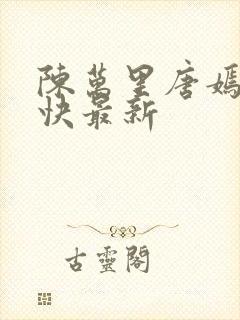 陳萬里唐嫣
快最新
古靈閣